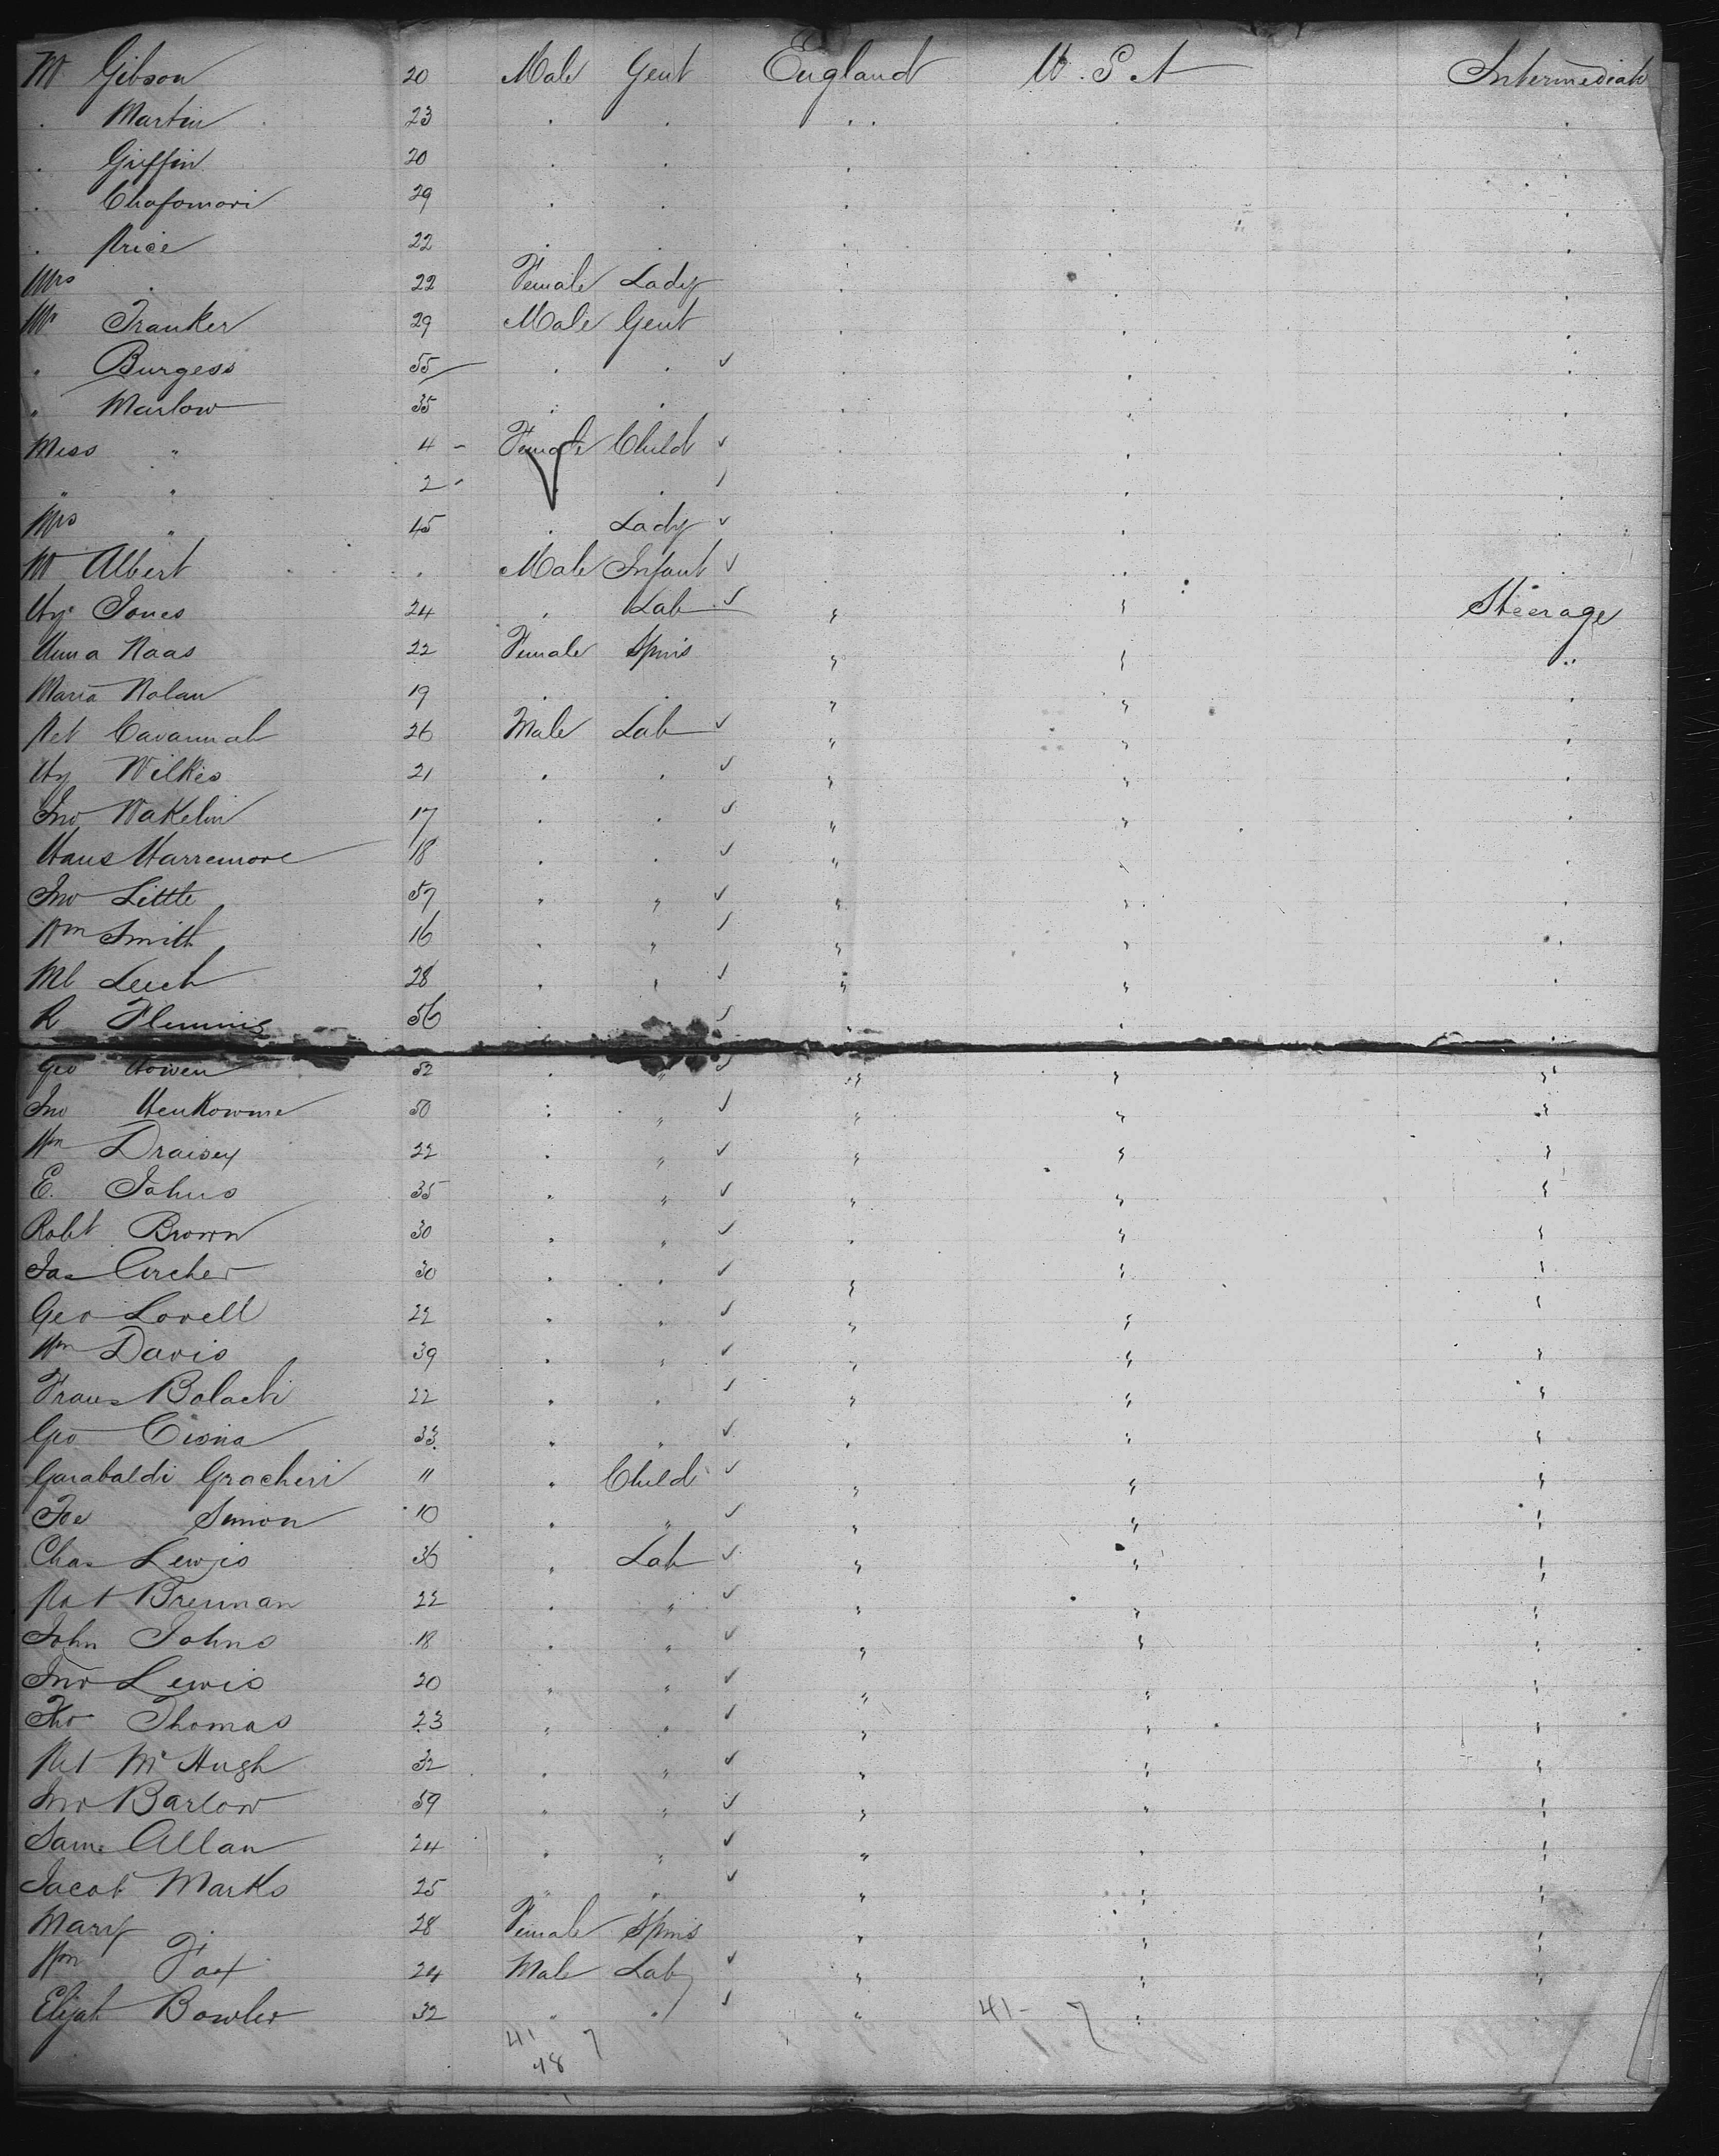 Mr Gibson 20 Male Gent England U.S.A Intermediate
. Martin 23 . . . . . .
. Griffin 20 . . . . .
. 29 . . . . .
. Price 22 . . . . .
Mrs . 22 Female Lady . . .
Mr Tranker 29 Male Gent . . .
" Burgess 55 . . . . .
" Marlow 35 . . . . .
Miss " 4 - Female Child . . .
" " 2 - . . . . .
Mrs " 45 . Lady . . .
Mr Albert . Male Infant . . .
Hy Jones 24 . Lab " " Steerage
Naas 22 Female Spins " " "
Maria Nolan 19 . . " " .
Pat Cavannah 26 Male Lab " " .
Hy Wilkes 21 . . " " .
Jno Wakelin 17 . . " " .
Hans Harremore 18 . . " " .
Jno Little 57 " " " " .
Wm Smith 16 . " " " .
Ml Leech 28 . " " " .
R Flemming 56 . " " .
Geo Howen 52 . " " " "
Jno 50 . " " " "
Wm Draisey 22 . " " " "
E. Johns 35 . " " " "
Robt Brown 30 . " " " "
Jas Archer 30 . . " " "
Geo Lovell 22 . " " " "
Wm Davis 39 . " " " "
Frans Bolachi 22 . . " " "
Geo Ciona 33 " " " " "
Garabaldi Gracheri 11 " Child " " "
Joe Simon 10 . " " " "
Chas Lewis 36 " Lab " " "
Pat Brennan 22 . " " " "
John Johns 18 . " " " "
Jno Lewis 20 " " " " "
Tho Thomas 23 " " " " "
Pat McHugh 32 . " " " "
Jno Barlow 59 " " " " "
Saml Allan 24 . " " . "
Jacob Marks 25 " " " " "
Mary . 28 Female Spins " " "
Wm Fox 24 Male Lab " " "
Elijah Bowler 32 . . " 41- 7 " .
41 7
48